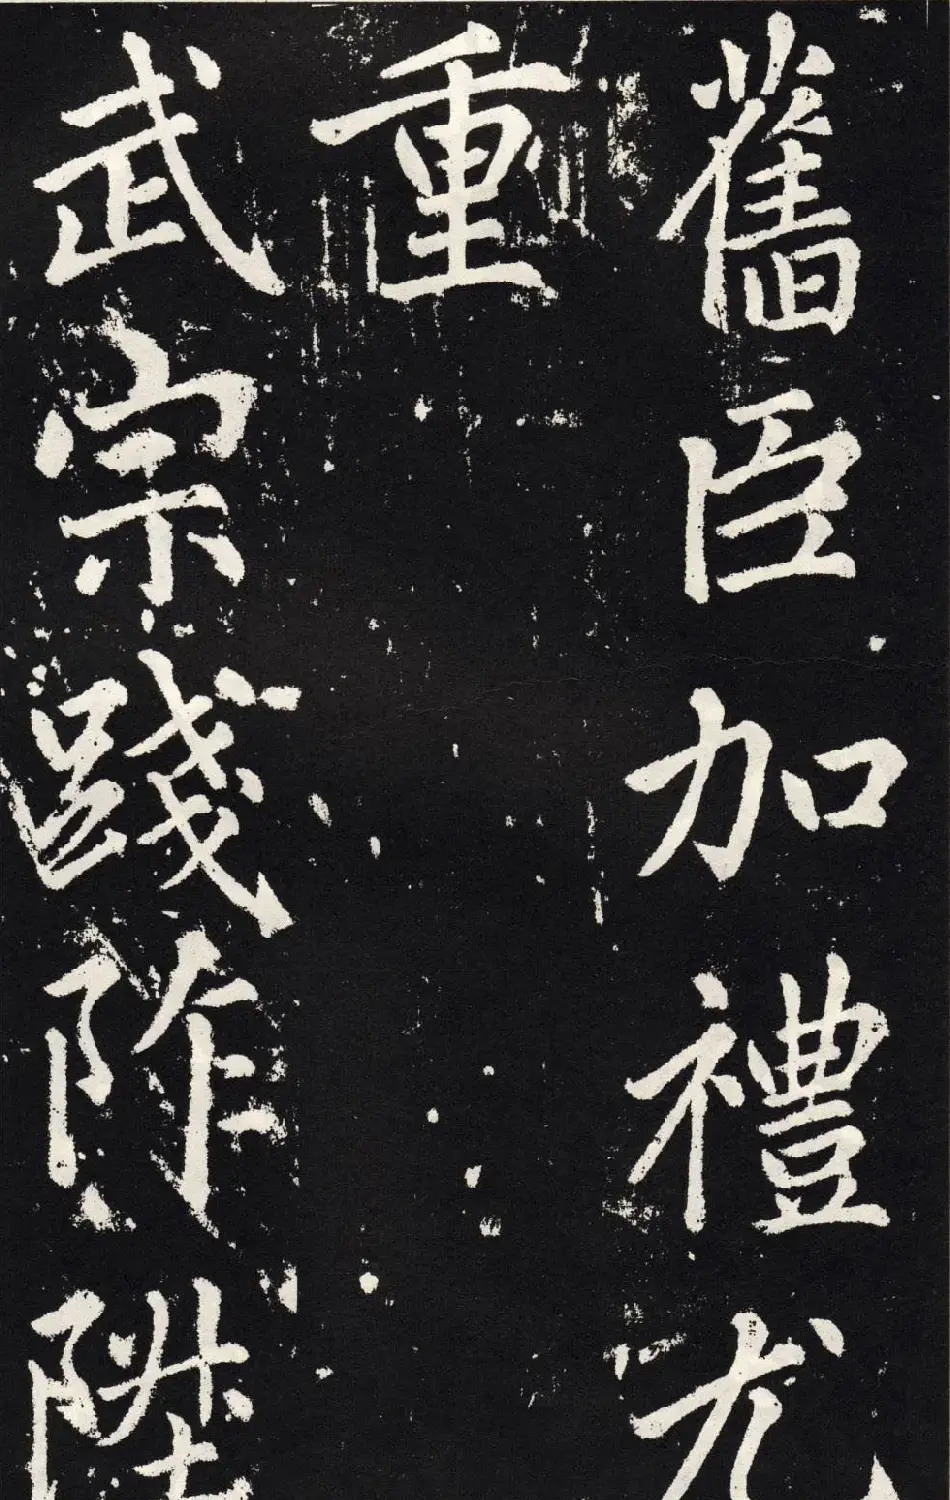 舊臣加禮尤
重
武宗踐阼陞